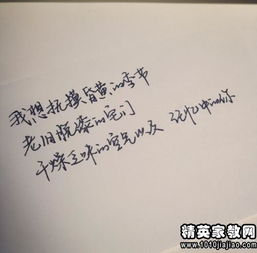 我想抚摸昏黄的季节
老旧脱漆的宅门
干燥乏味的空气以及 记忆中的你
精英家教网
www.1010jiajiao.com